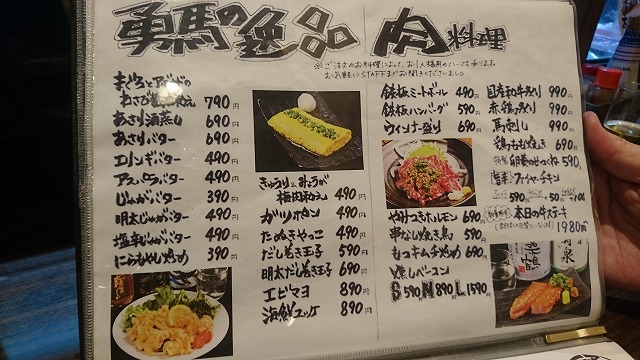 勇馬の逸品 肉料理
まぐろとアボカドの
わさび醤油和え 790円
あさり酒蒸し 690円
あさりバター 690円
エリンギバター 490円
アスパラバター 490円
じゃがバター 390円
明太じゃがバター 490円
塩辛じゃがバター 490円
にらもやし炒め 390円
きゅうりとみょうが
梅肉和え 490円
ガツポン 490円
たぬきやっこ 490円
だし巻き玉子 590円
明太だし巻き玉子 690円
エビマヨ 890円
海鮮ユッケ 890円
鉄板ミートボール 490円
鉄板ハンバーグ 590円
ウィンナー盛り 690円
やみつきホルモン 690円
串なし焼き鳥 590円
もつキムチ炒め 690円
燻しベーコン
S 590 M 890 L 1590円
国産和牛炙り 990円
赤鶏炙り 990円
馬刺し 990円
鶏もも焼き 690円
卵黄のせつくね 590円
ファイヤーチキン
590円
本日の牛ステーキ
1980円